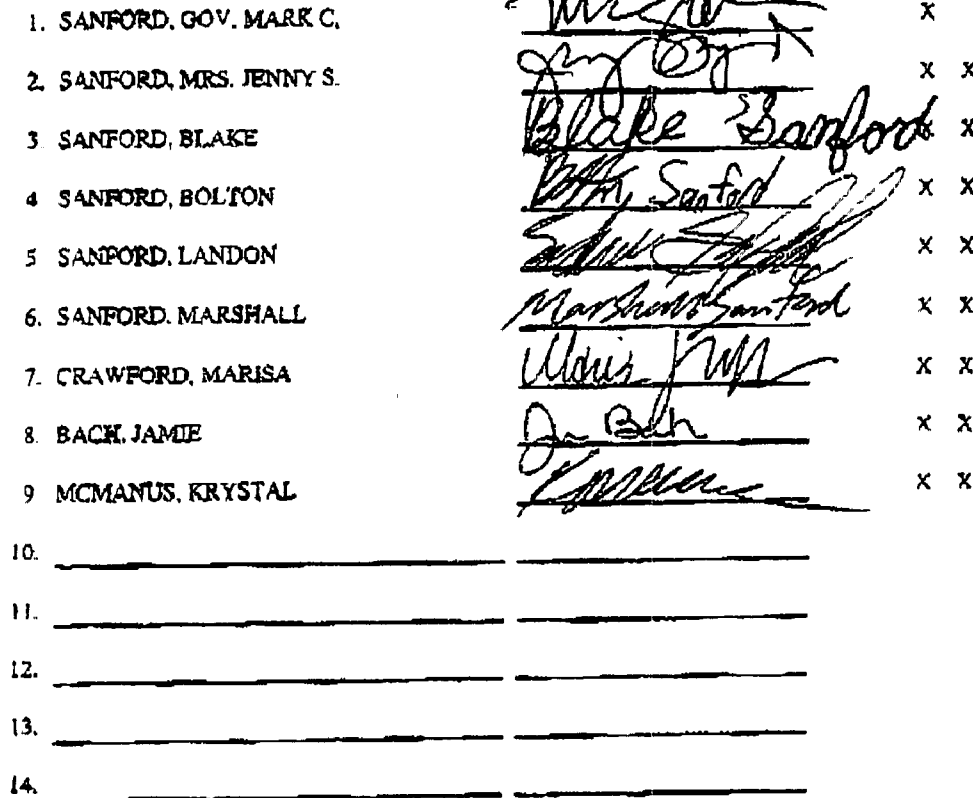 1. SANFORD, GOV. MARK C. x
2. SANFORD, MRS. JENNY S. x x
3 SANFORD, BLAKE Blake Sanford x x
4 SANFORD, BOLTON Sanford x x
5 SANFORD, LANDON x x
6. SANFORD, MARSHALL Marshall Sanford x x
7. CRAWFORD, MARISA x x
8. BACH, JAMIE x x
9 MCMANUS, KRYSTAL x x
10.
11.
12.
13.
14.